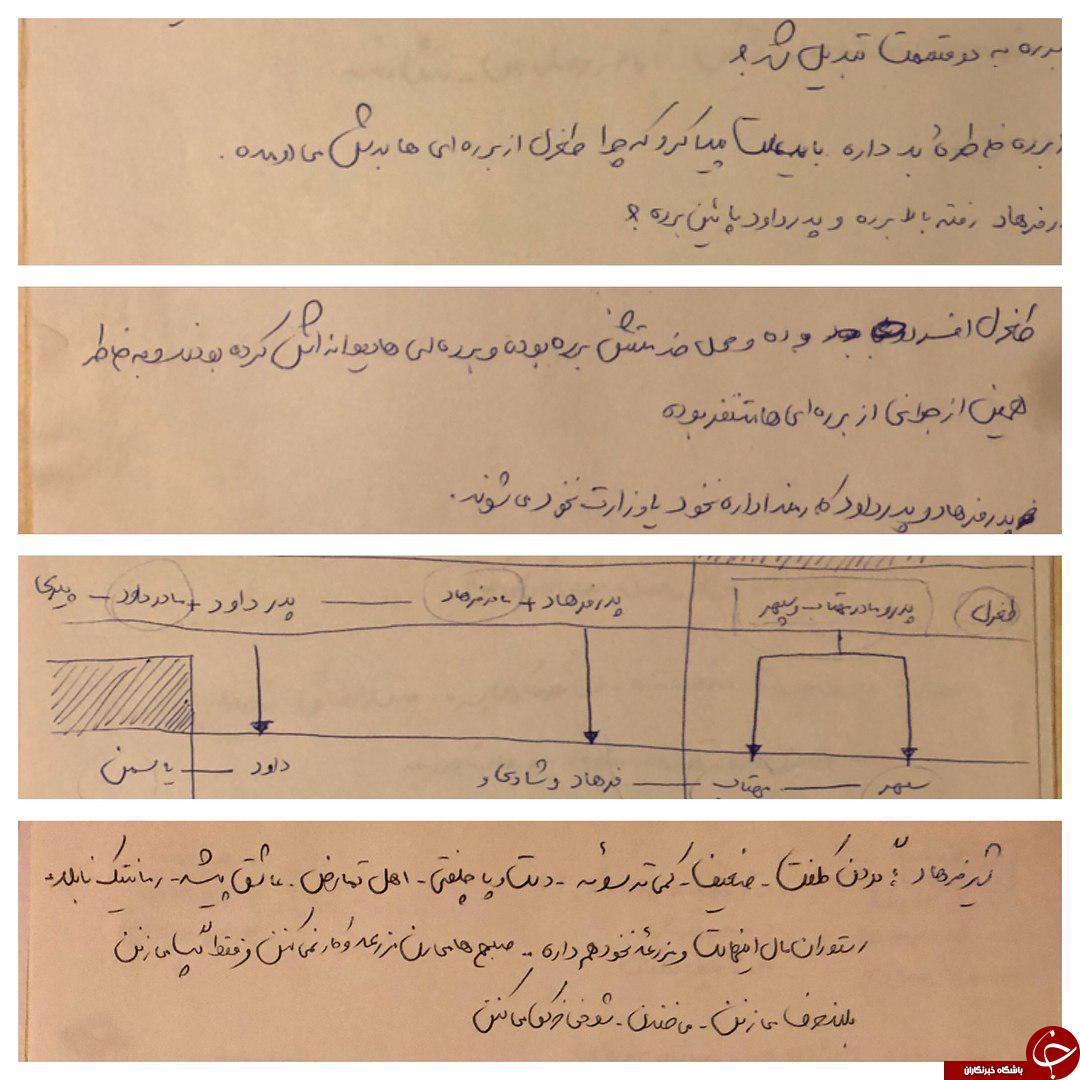 برره به دو قسمت تبدیل شد؟
از برره خاطرهٔ بد داره باید علت پیدا کرد که چرا طغرل از برره ای ها بدش می اومده.
فرهاد رفته بالا برره و پدر داود پائین برره؟
طغرل افسر بوده و محل خدمتش برره بوده و برره ای ها دیوانه اش کرده بودند و به خاطر
همین از جوانی از برره ای ها متنفر بوده
پدر فرهاد و پدر داود کارمند اداره نخود یا وزارت نخود می شوند.
طغرل پدر و مادر مهتاب و سپهر پدر فرهاد + مادر فرهاد — پدر داود + مادر داود —
سپهر — مهتاب — فرهاد و شادی و داود — یاسمن
تیپ فرهاد: گردن کلفت - ضعیف - کمی ترسوئه - دست و پا چلفتی - اهل تمارض - عاشق پیشه - رمانتیک نابلد
رستوران مال اینهاست و مزرعهٔ نخود هم داره - صبح ها می رن مزرعه و کار نمی کنن و فقط گپ می زنن
بلند حرف می زنن - می خندن - شوخی خرکی می کنن
باشگاه خبرنگاران